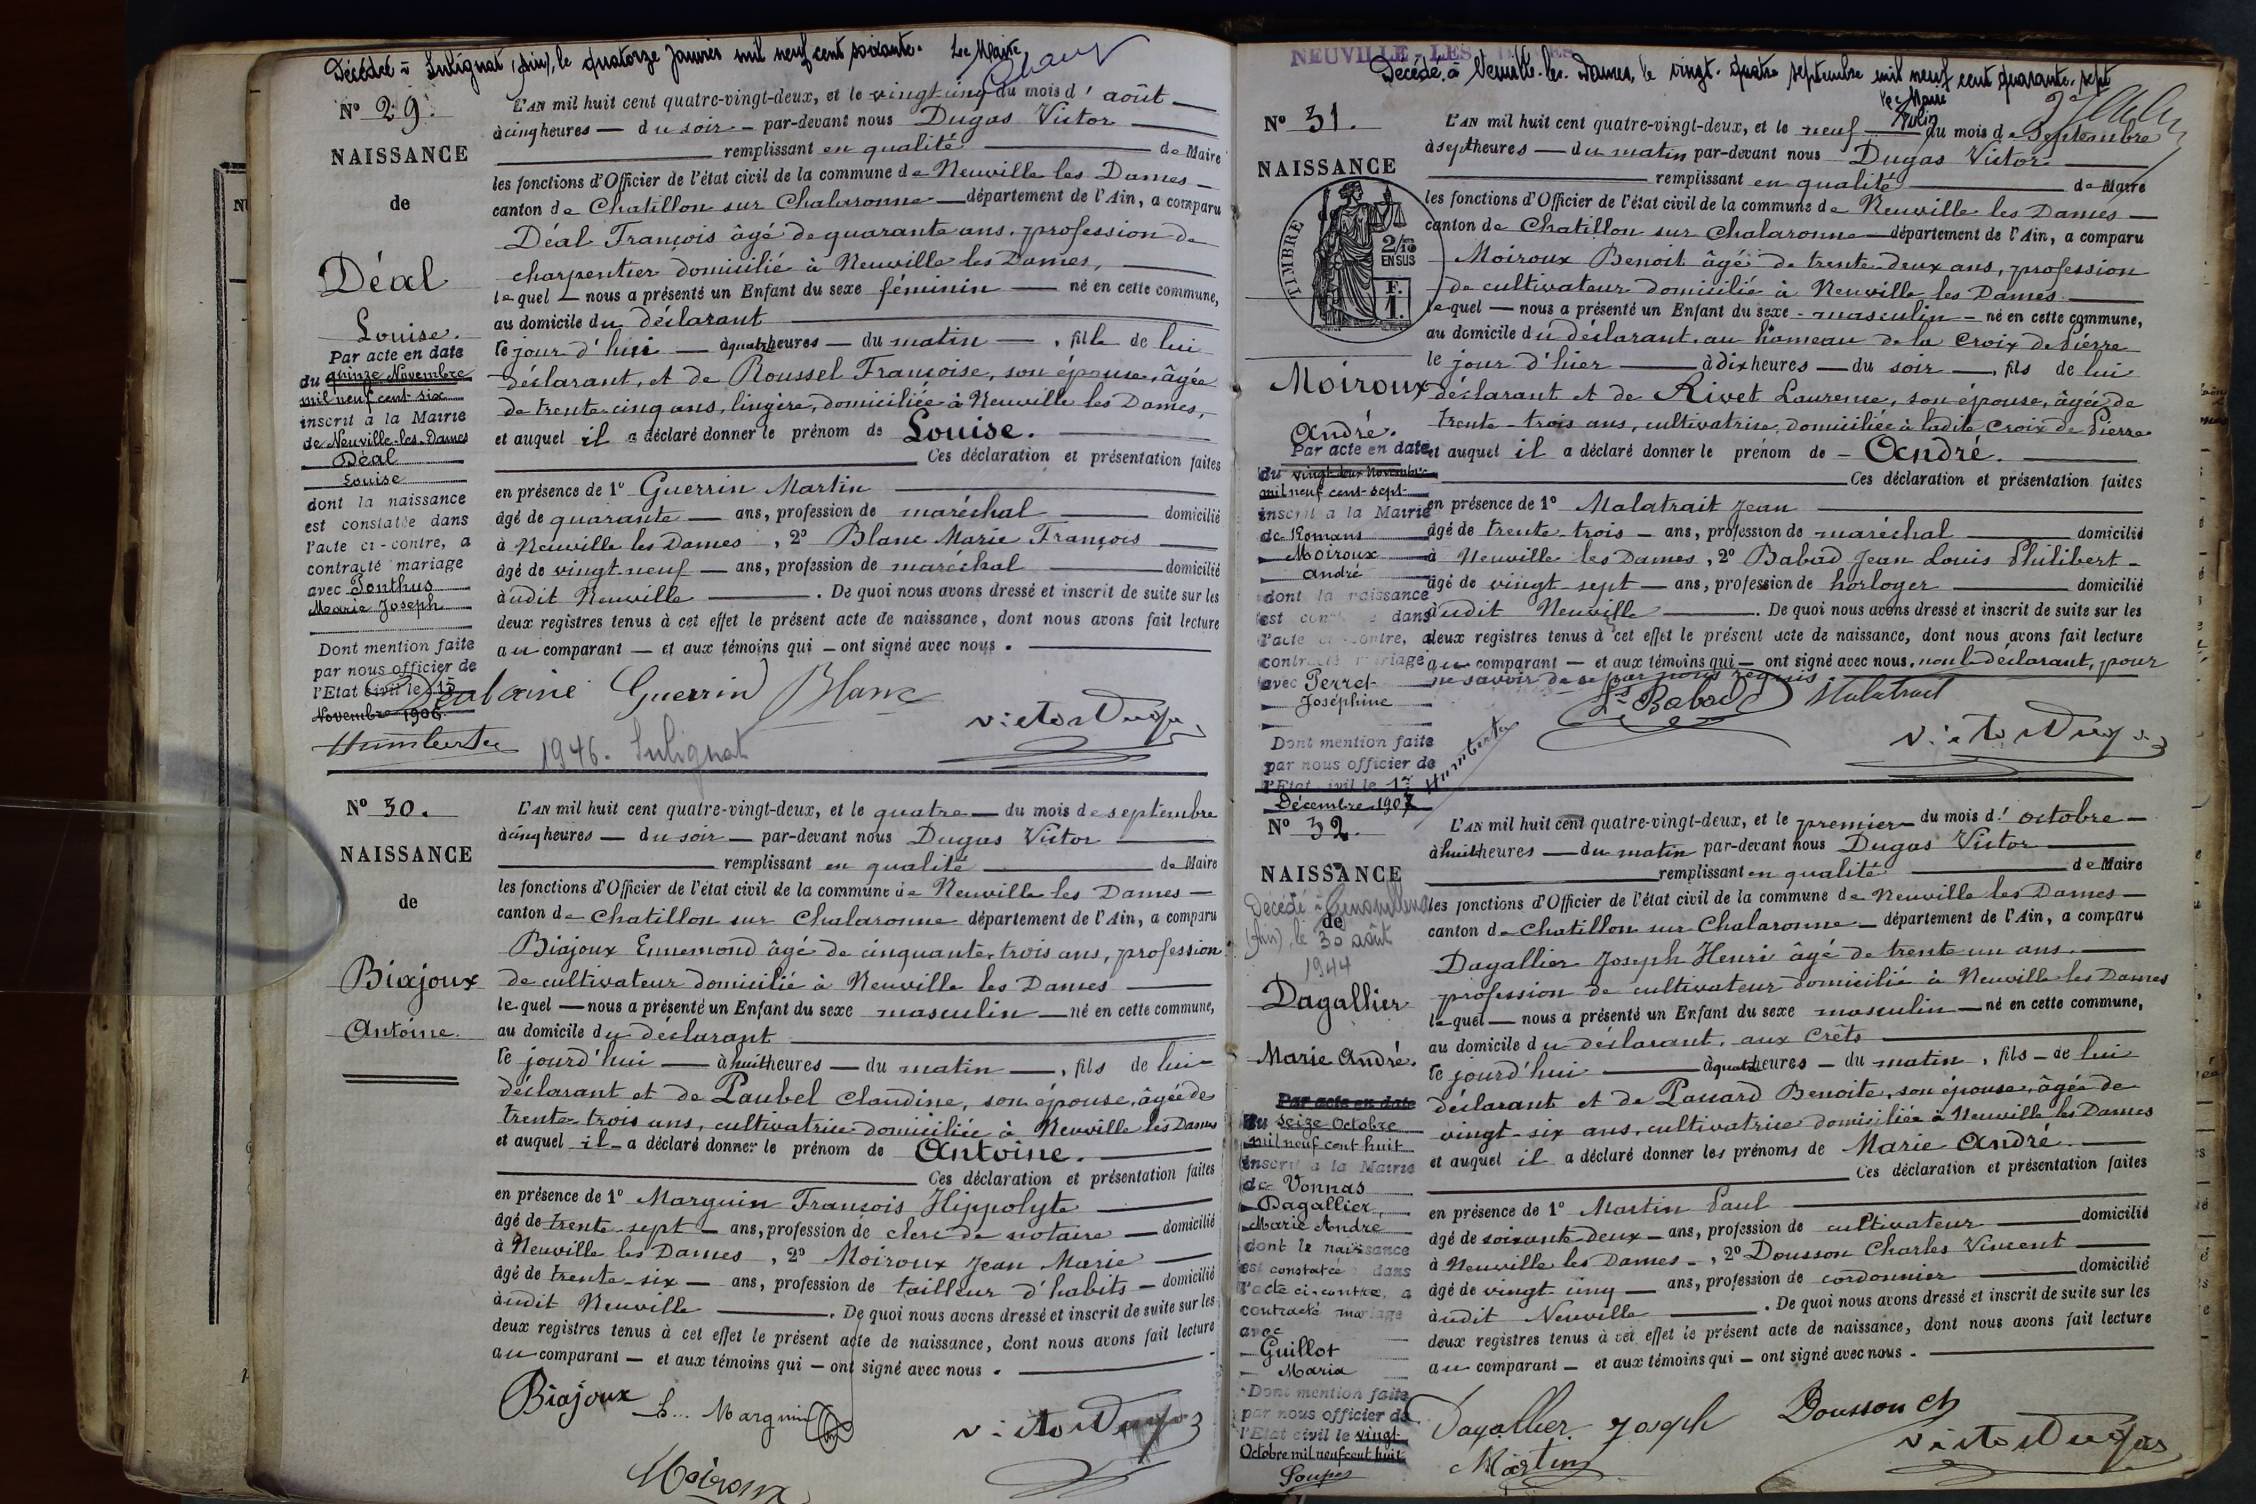 Décédée à Sulignat (Ain), le quatorze Janvier mil neuf cent soixante. Le Maire,
N° 29.
NAISSANCE
de
Déal
Louise.
Par acte en date
du quinze Novembre
mil neuf cent six
inscrit à la Mairie
de Neuville-les-Dames
Déal
Louise
dont la naissance
est constatée dans
l'acte ci-contre, a
contracté mariage
avec Ponthus
Marie Joseph
Dont mention faite
par nous officier de
l'Etat civil le 15
Novembre 1906.
Humbert
L'AN mil huit cent quatre-vingt-deux, et le vingt-cinq du mois d'août
à cinq heures — du soir — par-devant nous Dugas Victor
remplissant en qualité de Maire
les fonctions d'Officier de l'état civil de la commune de Neuville les Dames
canton de Chatillon sur Chalaronne département de l'Ain, a comparu
Déal François âgé de quarante ans, profession de
charpentier domicilié à Neuville les Dames,
lequel — nous a présenté un Enfant du sexe féminin — né en cette commune,
au domicile du déclarant
le jour d'hui — à quatre heures — du matin — , fille de lui
déclarant, et de Roussel Françoise, son épouse, âgée
de trente-cinq ans, lingère, domiciliée à Neuville les Dames,
et auquel il a déclaré donner le prénom de Louise.
Ces déclaration et présentation faites
en présence de 1° Guerrin Martin
âgé de quarante — ans, profession de maréchal domicilié
à Neuville les Dames , 2° Blanc Marie François
âgé de vingt-neuf — ans, profession de maréchal domicilié
àudit Neuville . De quoi nous avons dressé et inscrit de suite sur les
deux registres tenus à cet effet le présent acte de naissance, dont nous avons fait lecture
au comparant — et aux témoins qui — ont signé avec nous.
Guerrin Blanc
Victor Dugas
1946. Sulignat
N° 30.
NAISSANCE
de
Biajoux
Antoine.
L'AN mil huit cent quatre-vingt-deux, et le quatre — du mois de septembre
à cinq heures — du soir — par-devant nous Dugas Victor
remplissant en qualité de Maire
les fonctions d'Officier de l'état civil de la commune de Neuville les Dames
canton de Chatillon sur Chalaronne département de l'Ain, a comparu
Biajoux Ennemond âgé de cinquante-trois ans, profession
de cultivateur domicilié à Neuville les Dames
lequel — nous a présenté un Enfant du sexe masculin — né en cette commune,
au domicile du déclarant
le jourd'hui — à huit heures — du matin — , fils de lui
déclarant et de Paubel Claudine, son épouse, âgée de
trente-trois ans, cultivatrice domiciliée à Neuville les Dames
et auquel il a déclaré donner le prénom de Antoine.
Ces déclaration et présentation faites
en présence de 1° Marguin François Hippolyte
âgé de trente-sept — ans, profession de clerc de notaire — domicilié
à Neuville les Dames , 2° Moiroux Jean Marie
âgé de trente-six — ans, profession de tailleur d'habits — domicilié
àudit Neuville . De quoi nous avons dressé et inscrit de suite sur les
deux registres tenus à cet effet le présent acte de naissance, dont nous avons fait lecture
au comparant — et aux témoins qui — ont signé avec nous.
Biajoux Marguin Victor Dugas
Moiroux
NEUVILLE-LES-DAMES
Décédé, à Neuville-les-Dames, le vingt-quatre septembre mil neuf cent quarante-sept
Le Maire
N° 31.
NAISSANCE
TIMBRE
2/10
EN SUS
F.
1.
Moiroux
André.
Par acte en date
du vingt-deux Novembre
mil neuf cent-sept
inscrit a la Mairie
de Romans
Moiroux
André
dont la naissance
est dans
l'acte ci-contre, a
contracté mariage
avec Perret
Joséphine
Dont mention faite
par nous officier de
l'Etat civil le 1er
Décembre 1907
Humbert
L'AN mil huit cent quatre-vingt-deux, et le neuf — du mois de Septembre
à sept heures — du matin par-devant nous Dugas Victor
remplissant en qualité de Maire
les fonctions d'Officier de l'état civil de la commune de Neuville les Dames
canton de Chatillon sur Chalaronne département de l'Ain, a comparu
Moiroux Benoit âgé de trente-deux ans, profession
de cultivateur domicilié à Neuville les Dames.
lequel — nous a présenté un Enfant du sexe — masculin — né en cette commune,
au domicile du déclarant, au hameau de la Croix de Pierre
le jour d'hier — à dix heures — du soir —, fils de lui
déclarant et de Rivet Laurence, son épouse, âgée de
trente-trois ans, cultivatrice, domiciliée à ladite Croix de Pierre
et auquel il a déclaré donner le prénom de — André.
Ces déclaration et présentation faites
en présence de 1° Malatrait Jean
âgé de trente-trois — ans, profession de maréchal domicilié
à Neuville les Dames , 2° Babad Jean Louis Philibert
âgé de vingt-sept — ans, profession de horloger domicilié
àudit Neuville . De quoi nous avons dressé et inscrit de suite sur les
deux registres tenus à cet effet le présent acte de naissance, dont nous avons fait lecture
au comparant — et aux témoins qui — ont signé avec nous, non le déclarant, pour
ne savoir de ce par nous requis
Ls Babad Malatrait
Victor Dugas
N° 32.
NAISSANCE
de
Décédé à
(Ain), le 30 août
1944
Dagallier
Marie André.
Par acte en date
du seize Octobre
mil neuf cent huit
inscrit a la Mairie
de Vonnas
Dagallier
Marie André
dont la naissance
est constatée dans
l'acte ci-contre, a
contracté mariage
avec
Guillot
Maria
Dont mention faite
par nous officier de
l'Etat civil le vingt
Octobre mil neuf cent huit
Soupe
L'AN mil huit cent quatre-vingt-deux, et le premier — du mois d'octobre
à huit heures — du matin par-devant nous Dugas Victor
remplissant en qualité de Maire
les fonctions d'Officier de l'état civil de la commune de Neuville les Dames
canton de Chatillon sur Chalaronne — département de l'Ain, a comparu
Dagallier Joseph Henri âgé de trente un ans
profession de cultivateur domicilié à Neuville les Dames
lequel — nous a présenté un Enfant du sexe masculin — né en cette commune,
au domicile du déclarant, aux Crêts
le jourd'hui — à quatre heures — du matin , fils — de lui
déclarant et de Panard Benoite, son épouse, âgée de
vingt-six ans, cultivatrice domiciliée à Neuville les Dames
et auquel il a déclaré donner les prénoms de Marie André.
Ces déclaration et présentation faites
en présence de 1° Martin Paul
âgé de soixante-deux — ans, profession de cultivateur domicilié
à Neuville les Dames , 2° Dousson Charles Vincent
âgé de vingt-cinq — ans, profession de cordonnier domicilié
àudit Neuville . De quoi nous avons dressé et inscrit de suite sur les
deux registres tenus à cet effet le présent acte de naissance, dont nous avons fait lecture
au comparant — et aux témoins qui — ont signé avec nous.
Dagallier Joseph Dousson Ch
Martin Victor Dugas